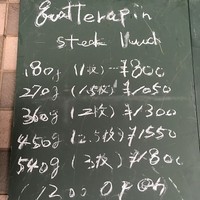 steak lunch
180g (1枚)…¥800
270g (1.5枚)¥1050
360g (2枚) ¥1300
450g (2.5枚) ¥1550
540g (3枚) ¥1800